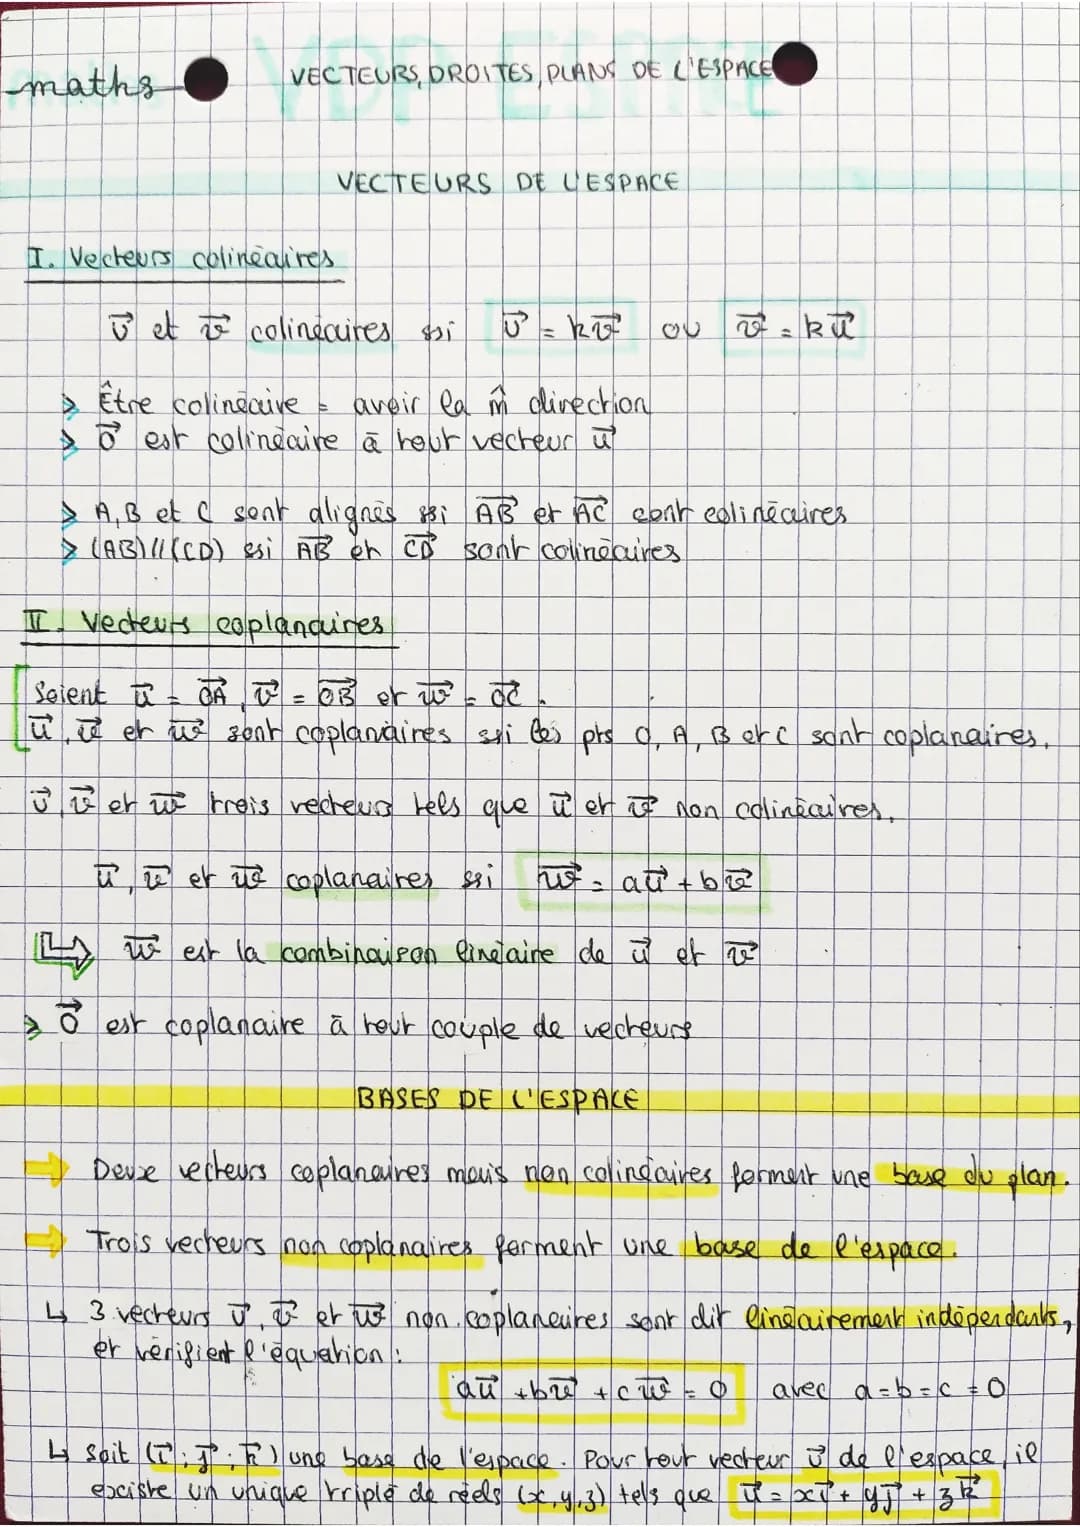 maths
VDP ESPACE
VECTEURS, DROITES, PLANS DE L'ESPACE
VECTEURS DE L'ESPACE
I. Vecteurs colinéaires
u⃗ et v⃗ colinéaires ssi u⃗ = kv⃗ ou v⃗ = ku⃗
> Être colinéaire = avoir la m̂ direction
> 0⃗ est colinéaire à tout vecteur u⃗
> A, B et C sont alignés ssi AB⃗ et AC⃗ sont colinéaires
> (AB)//(CD) ssi AB⃗ et CD⃗ sont colinéaires
II. Vecteurs coplanaires
Soient u⃗ = OA⃗, v⃗ = OB⃗ et w⃗ = OC⃗.
u⃗, v⃗ et w⃗ sont coplanaires ssi les pts O, A, B et C sont coplanaires.
u⃗, v⃗ et w⃗ trois vecteurs tels que u⃗ et v⃗ non colinéaires.
u⃗, v⃗ et w⃗ coplanaires ssi w⃗ = au⃗ + bv⃗
w⃗ est la combinaison linéaire de u⃗ et v⃗
> 0⃗ est coplanaire à tout couple de vecteurs
BASES DE L'ESPACE
⇨ Deux vecteurs coplanaires mais non colinéaires forment une base du plan.
⇨ Trois vecteurs non coplanaires forment une base de l'espace.
↳ 3 vecteurs u⃗, v⃗ et w⃗ non coplanaires sont dit linéairement indépendants,
et vérifient l'équation :
au⃗ + bv⃗ + cw⃗ = 0 avec a = b = c = 0
↳ Soit (i⃗ ; j⃗ ; k⃗) une base de l'espace. Pour tout vecteur u⃗ de l'espace, il
existe un unique triplé de réels (x, y, z) tels que u⃗ = xi⃗ + yj⃗ + zk⃗